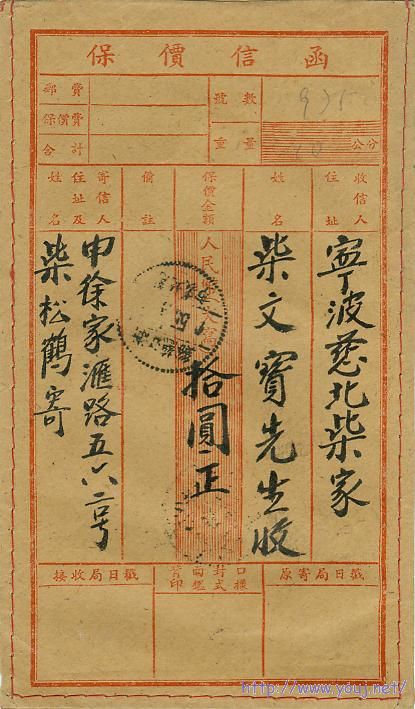 保價信函
郵費
保價費
合計
號數
975
重量
公分
收信人
住址
寧波慈北柴家
姓名
柴文寶先生收
保價金額
人民幣
拾圓正
備註
寄信人
住址及
姓名
申徐家滙路五六二号
柴松鶴寄
接收局日戳
封口
式樣
原寄局日戳
http://www.youj.net/